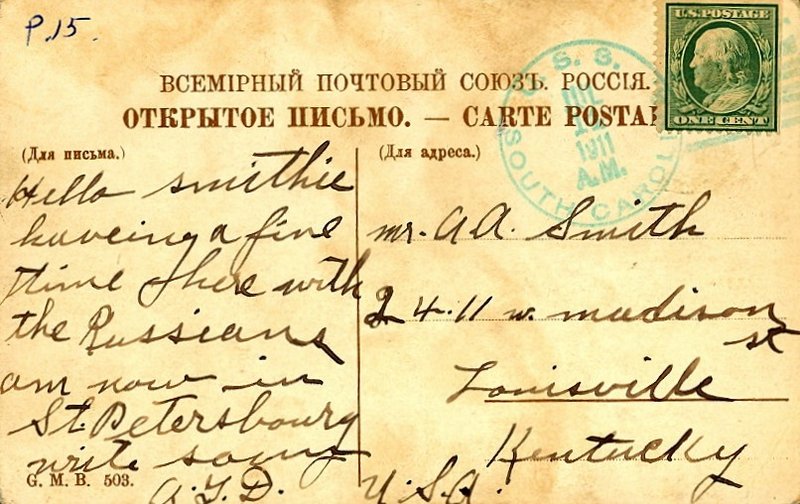 P.15.
U.S. POSTAGE
ONE CENT
U. S. S.
SOUTH CAROLI
1911
A.M.
ВСЕМІРНЫЙ ПОЧТОВЫЙ СОЮЗЪ. РОССІЯ.
ОТКРЫТОЕ ПИСЬМО. — CARTE POSTAL
(Для письма.)
Hello smithie
haveing a fine
time here with
the Russians
am now in
St. Petersbourg
write soon
A.Y.D.
G. M. B. 503.
(Для адреса.)
mr. A A. Smith
2411 w. madison
st
Louisville
Kentucky
U.S.A.